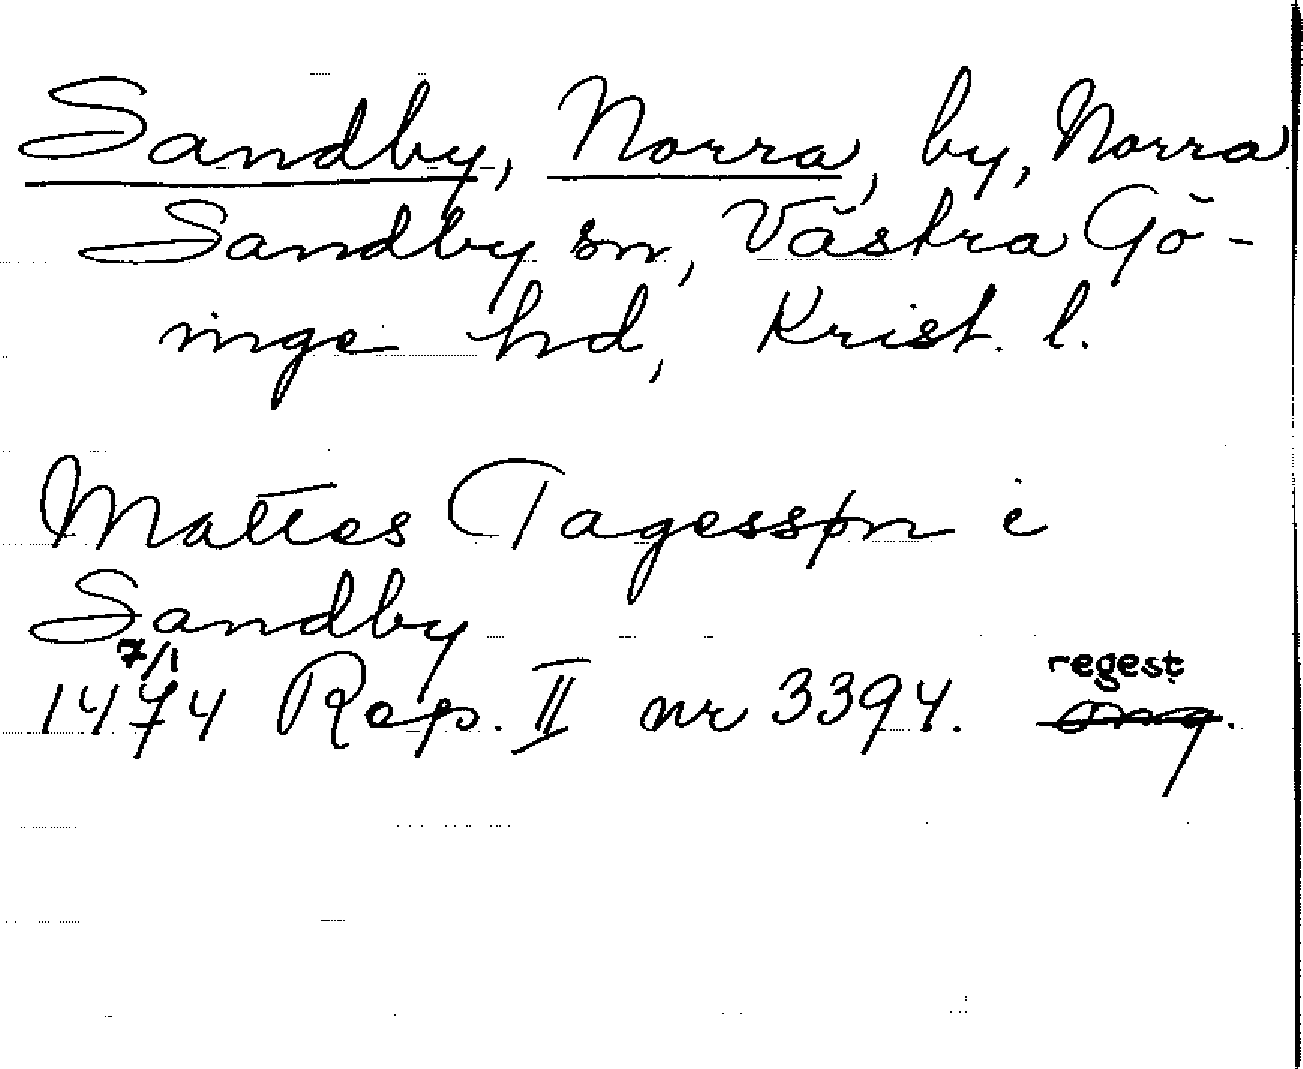 Sandby, Norra, by, Norra
Sandby sn, Västra Gö-
inge hd, Krist. l.
Mattes Tagessøn i
Sandby
7/1
1474 Rep. II nr 3394. regest